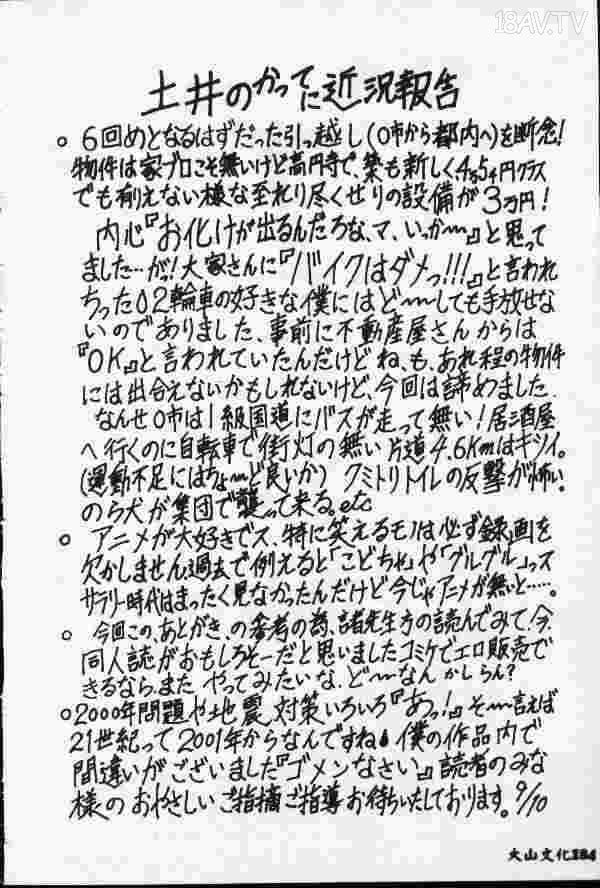 18AV.TV
土井のかってに近況報告
○ 6回めとなるはずだった引っ越し(O市から都内へ)を断念!
物件は家ブロこそ無いけど高円寺で、築も新しく、4.5畳クラス
でも有りえない様な至れり尽くせりの設備が3万円!
内心『お化けが出るんだろな、マ、いっか〜』と思って
ました…がッ!大家さんに『バイクはダメっ!!!』と言われ
ちった02輪車の好きな僕にはど〜しても手放せな
いのでありました、事前に不動産屋さんからは
『OK』と言われていたんだけどね、も、あれ程の物件
には出合えないかもしれないけど、今回は諦めました
なんせO市は1級国道にバスが走って無い!居酒屋
へ行くのに自転車で街灯の無い片道4.6Kmはキツイ。
(運動不足にはちょ〜ど良いか) クミトリトイレの反撃が怖い。
のら犬が集団で襲って来る。etc
○ アニメが大好きでス、特に笑えるモノは必ず録画を
欠かしません過去で例えると「こどちゃ」や「グルグル」っス
サラリー時代はまったく見なかったんだけど今じゃアニメが無いと……。
○ 今回この、あとがき、の参考の為、諸先生方の読んでみて、今、
同人誌がおもしろそーだと思いましたコミケでエロ販売で
きるなら、また やってみたいな、ど〜なん かしらん?
○2000年問題や地震対策いろいろ『あっ!』そ〜言えば
21世紀って2001年からなんですね 僕の作品内で
間違いがございました『ゴメンなさい』読者のみな
様の おやさしい ご指摘ご指導 お待ちいたしております。9/10
大山文化184